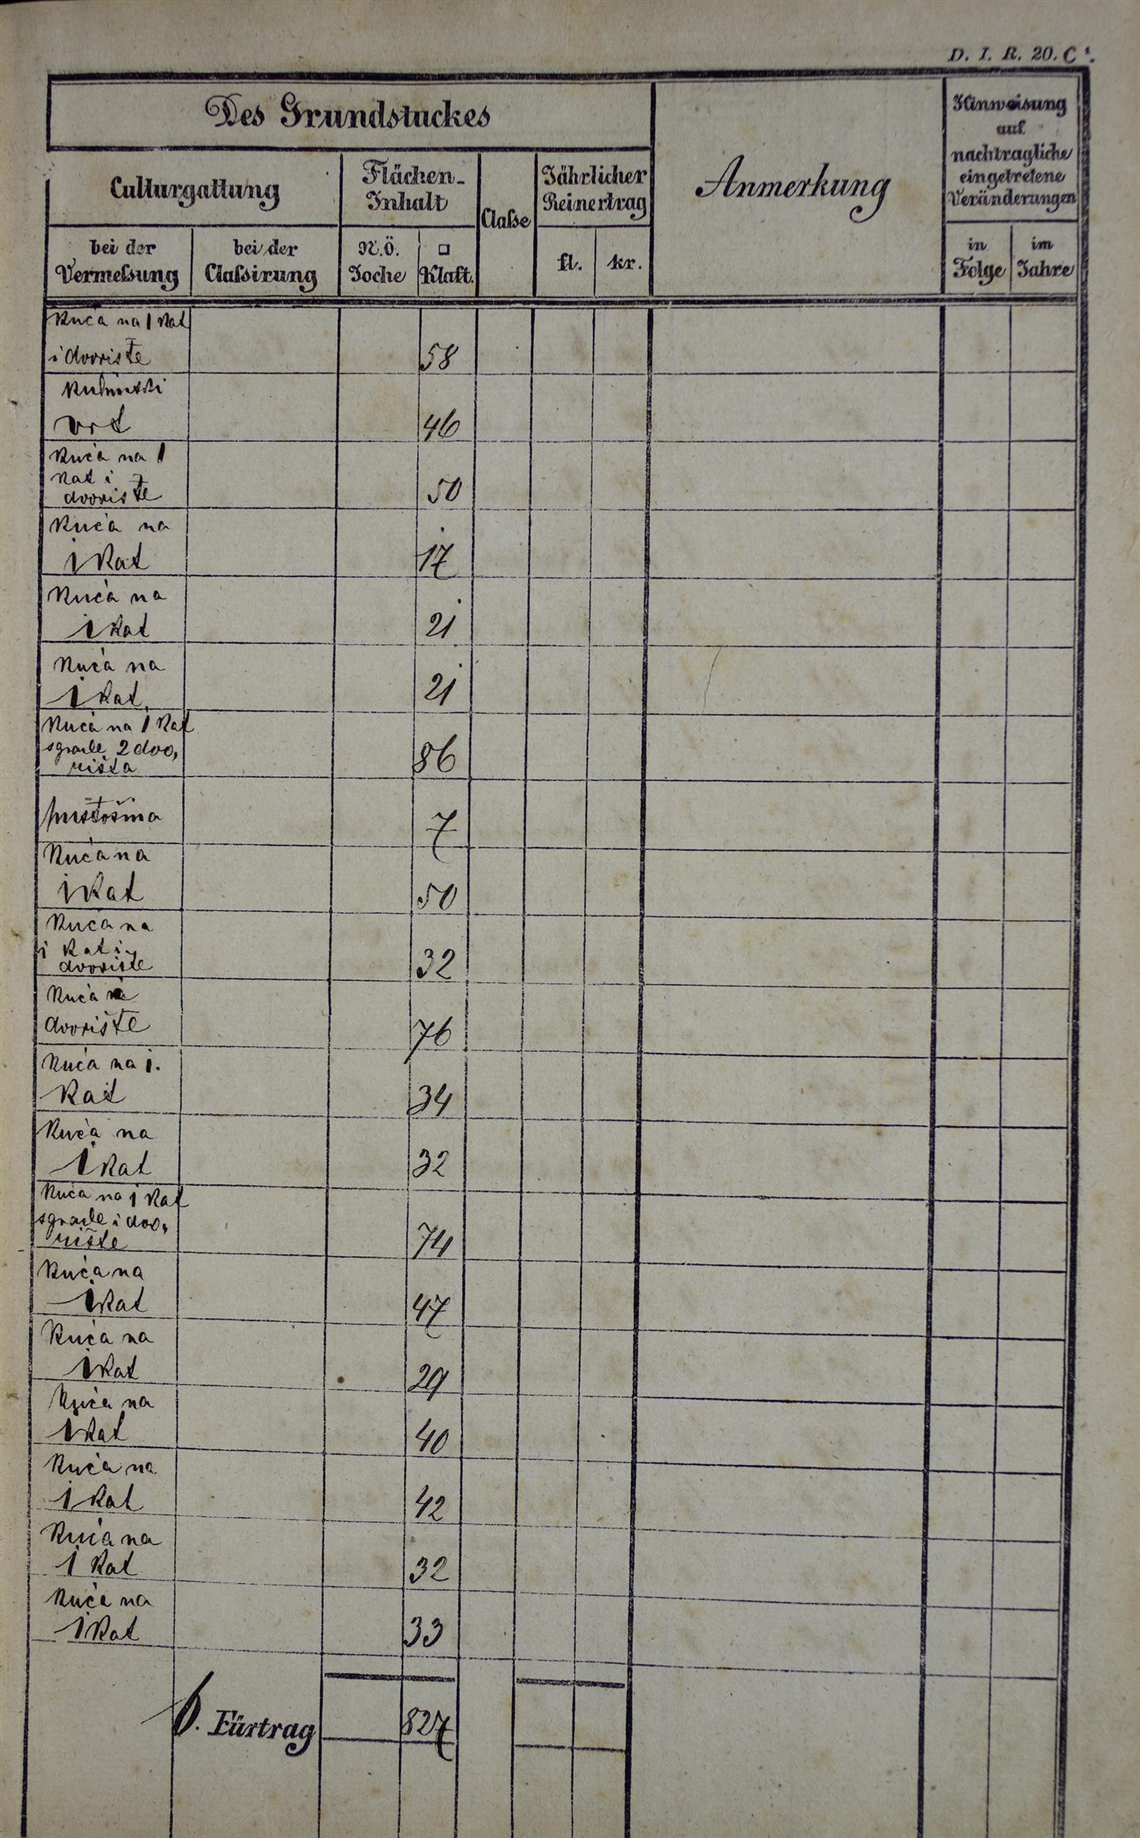 D. I. R. 20. C¹.
Des Grundstuckes
Anmerkung
Hinweisung
auf
nachtragliche
eingetretene
Veränderungen
Culturgattung
Flächen-
Inhalt
Classe
Jährlicher
Reinertrag
bei der
Vermeſsung
bei der
Claſsirung
N.Ö.
Joche
□
Klaft.
fl.
kr.
in
Folge
im
Jahre
Kuća na 1 Kat
i dvorište 58
vrt 46
Kuća na 1
Kat i
dvorište 50
Kuća na
1 Kat 17
Kuća na
1 Kat 21
Kuća na
1 Kat 21
Kuća na 1 Kat
sgrade 2 dvo,
rišta 86
pustošina 7
Kuća na
1 Kat 50
Kuća na
1 Kat i
dvorište 32
Kuća
dvorište 76
Kuća na 1.
Kat 34
Kuća na
1 Kat 32
Kuća na 1 Kat
sgrade i dvo,
rište 74
Kuća na
1 Kat 47
Kuća na
1 Kat 29
Kuća na
1 Kat 40
Kuća na
1 Kat 42
Kuća na
1 Kat 32
Kuća na
1 Kat 33
6. Fürtrag 827